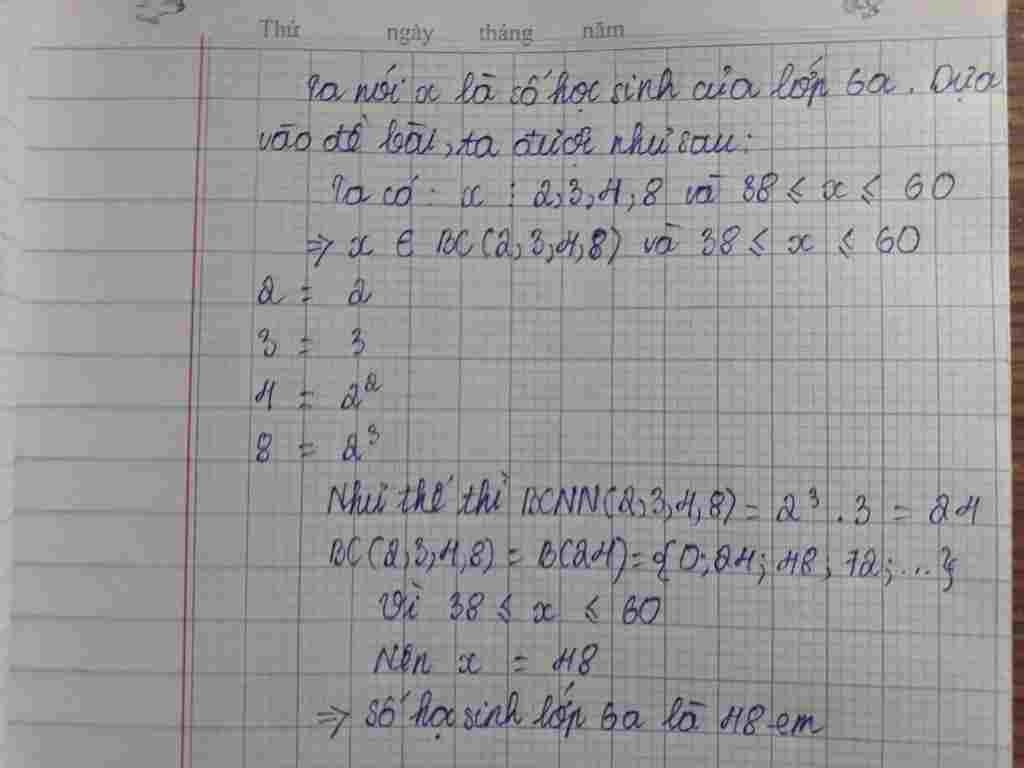 Thứ ngày tháng năm
Ta nói x là số học sinh của lớp 6a. Dựa
vào đề bài, ta được như sau:
Ta có: x : 2,3,4,8 và 38 ≤ x ≤ 60
=> x ∈ BC(2,3,4,8) và 38 ≤ x ≤ 60
2 = 2
3 = 3
4 = 2²
8 = 2³
Như thế thì BCNN(2,3,4,8) = 2³ . 3 = 24
BC(2,3,4,8) = B(24) = {0; 24; 48; 72; ...}
Vì 38 ≤ x ≤ 60
Nên x = 48
=> Số học sinh lớp 6a là 48 em